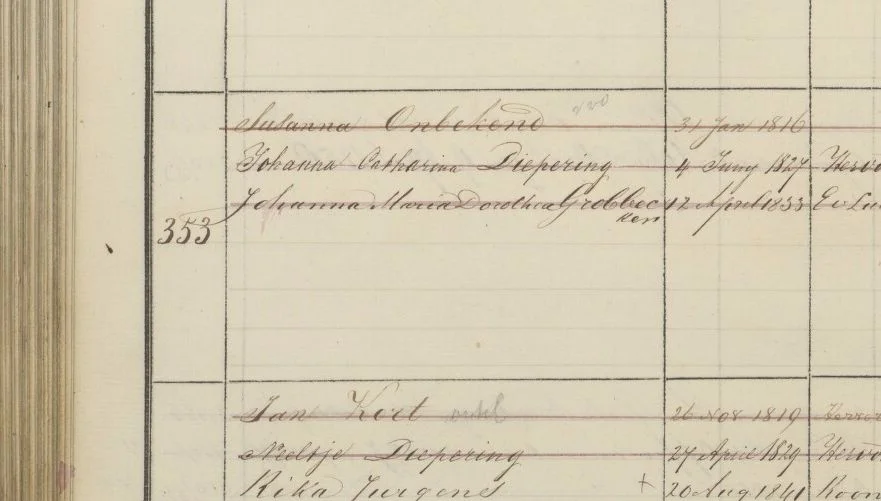 Susanna Onbekend 31 Jan 1816
Johanna Catharina Diepering 4 Juny 1827 Hervo
Johanna Maria Dorothea Grobbec 12 April 1833 Ev Lu
ken
353
Jan Kort 26 Nov 1819 Hervor
Neeltje Diepering 27 April 1829 Hervo
Rika Jurgens + 20 Aug 1841 Room